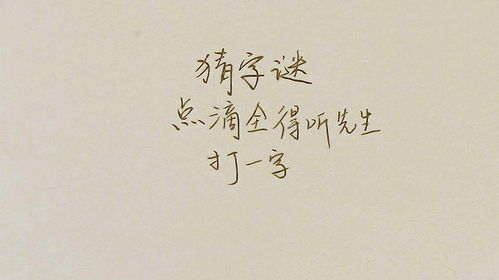 猜字谜
点滴全得听先生
打一字